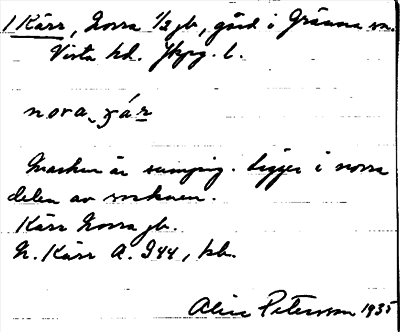 1 Kärr, Norra 1/2 jb, gård i Gränna sn.
Vista hd. Jkpg. l.
nora ɣár
Marken är sumpig. Ligger i norra
delen av socknen.
Kärr Norra jb.
N. Kärr A. 944, kb.
Alice Petersson 1935